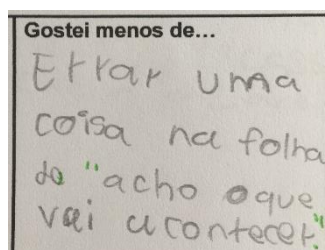 Gostei menos de...
Errar uma
coisa na folha
do "acho oque
vai acontecer"